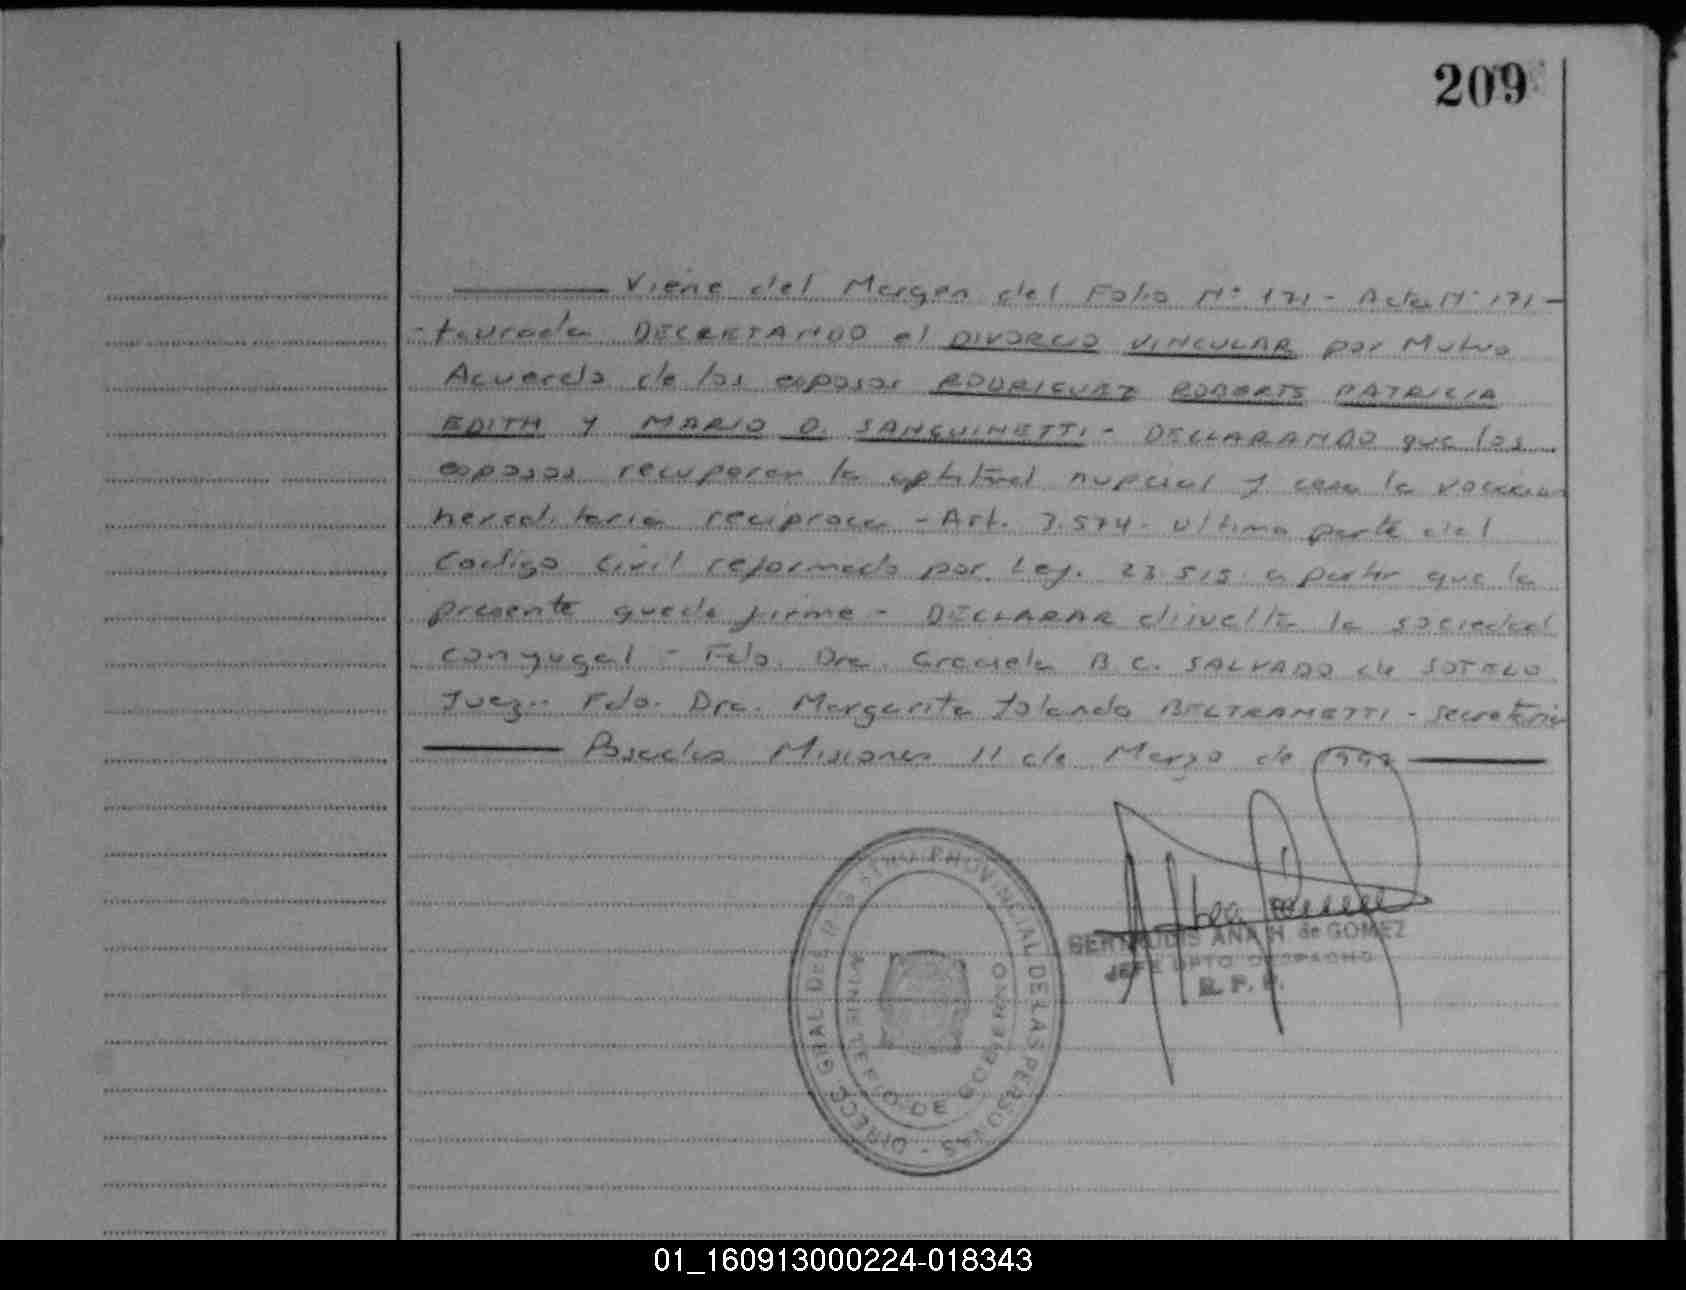 209
Viene del Margen del Folio N° 171 - Acta N° 171 -
- taurada DECRETANDO el DIVORCIO VINCULAR por Mutuo
Acuerdo de los esposos RODRIGUEZ ROBERTS PATRICIA
EDITH y MARIO D. SANGUINETTI - DECLARANDO que los
esposos recuperan la aptitud nupcial y cesa la vocacion
hereditaria reciproca - Art. 3.574 - Ultima parte del
Codigo Civil reformado por Ley. 23.515. a partir que la
presente quede firme - DECLARAR disuelta la sociedad
conyugal - Fdo. Dra. Graciela B. C. SALVADO de SOTELO
Juez.. Fdo. Dra. Margarita Iolanda BELTRAMETTI - Secretaria
Posadas Misiones 11 de Marzo de
DIRECC. GRAL. DEL REGISTRO PROVINCIAL DE LAS PERSONAS -
MINISTERIO DE GOBIERNO
GERTRUDIS ANA H. de GOMEZ
JEFE DPTO DESPACHO
R. P. P.
01_160913000224-018343